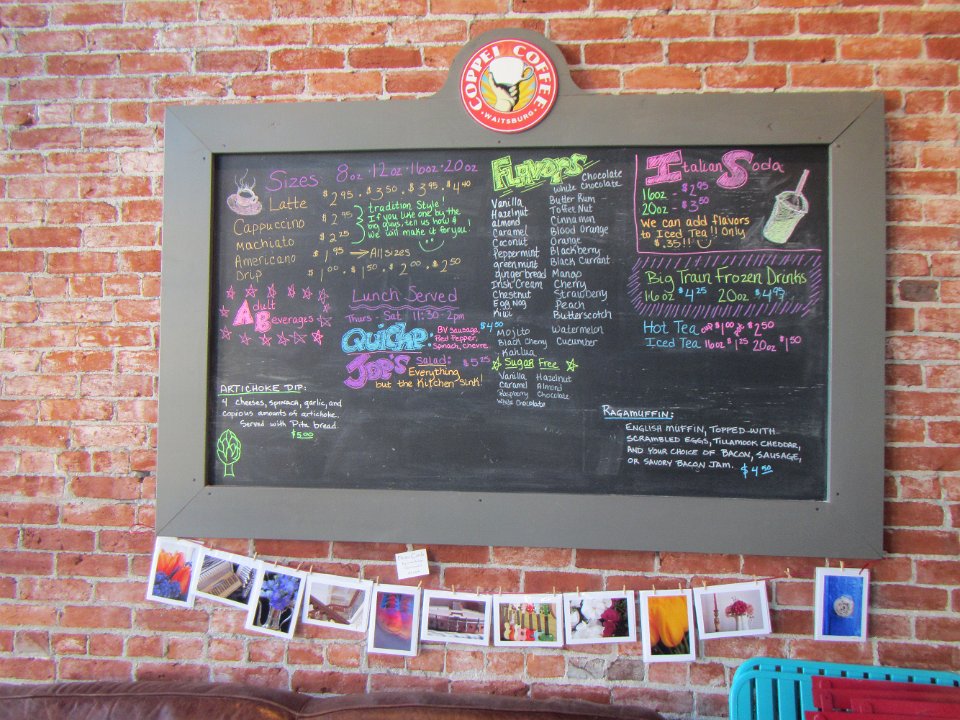 COPPEI COFFEE
• WAITSBURG •
Sizes 8oz • 12oz • 16oz • 20oz
Latte $2.95 . $3.50 . $3.95 . $4.40
Cappuccino $2.95
Machiato $2.25
tradition Style!
If you like one by the
big guys, tell us how &
we will make it for you!
Americano $1.95 → All sizes
Drip $1.00 . $1.50 . $2.00 . $2.50
Adult
Beverages
Lunch Served
Thurs - Sat 11:30-2pm
QUICHE: $4.50
BV Sausage,
Red Pepper,
Spinach, Chevre
JOE'S Salad: $5.25
Everything
but the Kitchen Sink!
ARTICHOKE DIP:
4 cheeses, spinach, garlic, and
copious amounts of artichoke.
Served with Pita bread.
$5.00
Flavors
Vanilla
Hazelnut
almond
Caramel
Coconut
Peppermint
greenmint
gingerbread
Irish Cream
Chestnut
Egg Nog
Kiwi
Mojito
Black Cherry
Kahlua
Chocolate
White Chocolate
Butter Rum
Toffee Nut
Cinnamin
Blood Orange
Orange
Blackberry
Black Currant
Mango
Cherry
Strawberry
Peach
Butterscotch
Watermelon
Cucumber
Sugar Free
Vanilla Hazelnut
Caramel Almond
Raspberry Chocolate
White Chocolate
Italian Soda
16oz - $2.95
20oz - $3.50
We can add flavors
to Iced Tea!! Only
$.35!!
Big Train Frozen Drinks
16oz $4.25 20oz $4.95
Hot Tea $1.00 $2.50
Iced Tea 16oz $1.25 20oz $1.50
RAGAMUFFIN:
ENGLISH MUFFIN, TOPPED WITH
SCRAMBLED EGGS, TILLAMOOK CHEDDAR,
AND YOUR CHOICE OF BACON, SAUSAGE,
OR SAVORY BACON JAM. $4.50